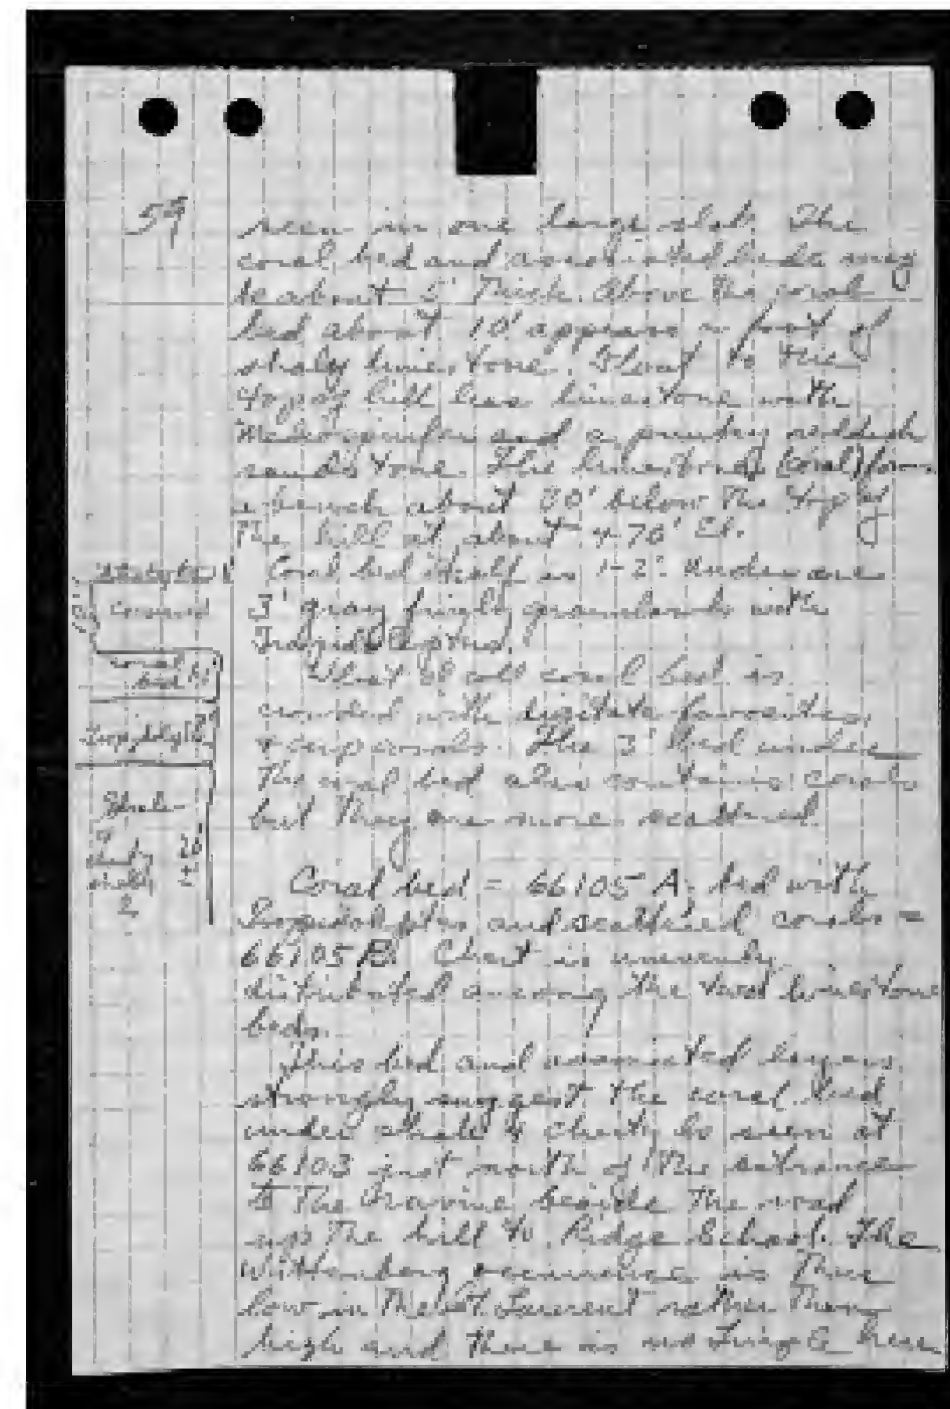 59
seen in one large slab. The
coral bed and associated beds may
be about 5' thick. Above the coral
bed about 10' appears a foot of
shaly limestone. Float to the
top of hill has limestone with
and a reddish
sandstone. The limestone (coral) forms
a bench about 80' below the top of
the hill at about 470' El.
Coral bed itself is 1-2'. Under are
3' gray with
Tropidoleptus.
What I call coral bed is
crowded with digitate favosites
& cup corals. The 3' bed under
the coral bed also contains corals
but they are more scattered.
covered
coral
bed
Tropidolep
Shale
Coral bed = 66105 A; bed with
Tropidoleptus and scattered corals =
66105 B. Chert is unevenly
distributed among the two limestone
beds.
This bed and associated layers
strongly suggest the coral bed
under shale & cherty ls seen at
66103 just north of the entrance
to the ravine beside the road
up the hill to Ridge School. The
Wittenberg occurrence is thus
low in the St. Laurent rather than
high and there is no Lingle here